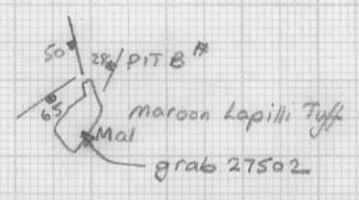 50
28 PIT B #
65
maroon Lapilli Tuff
Mal
grab 27502